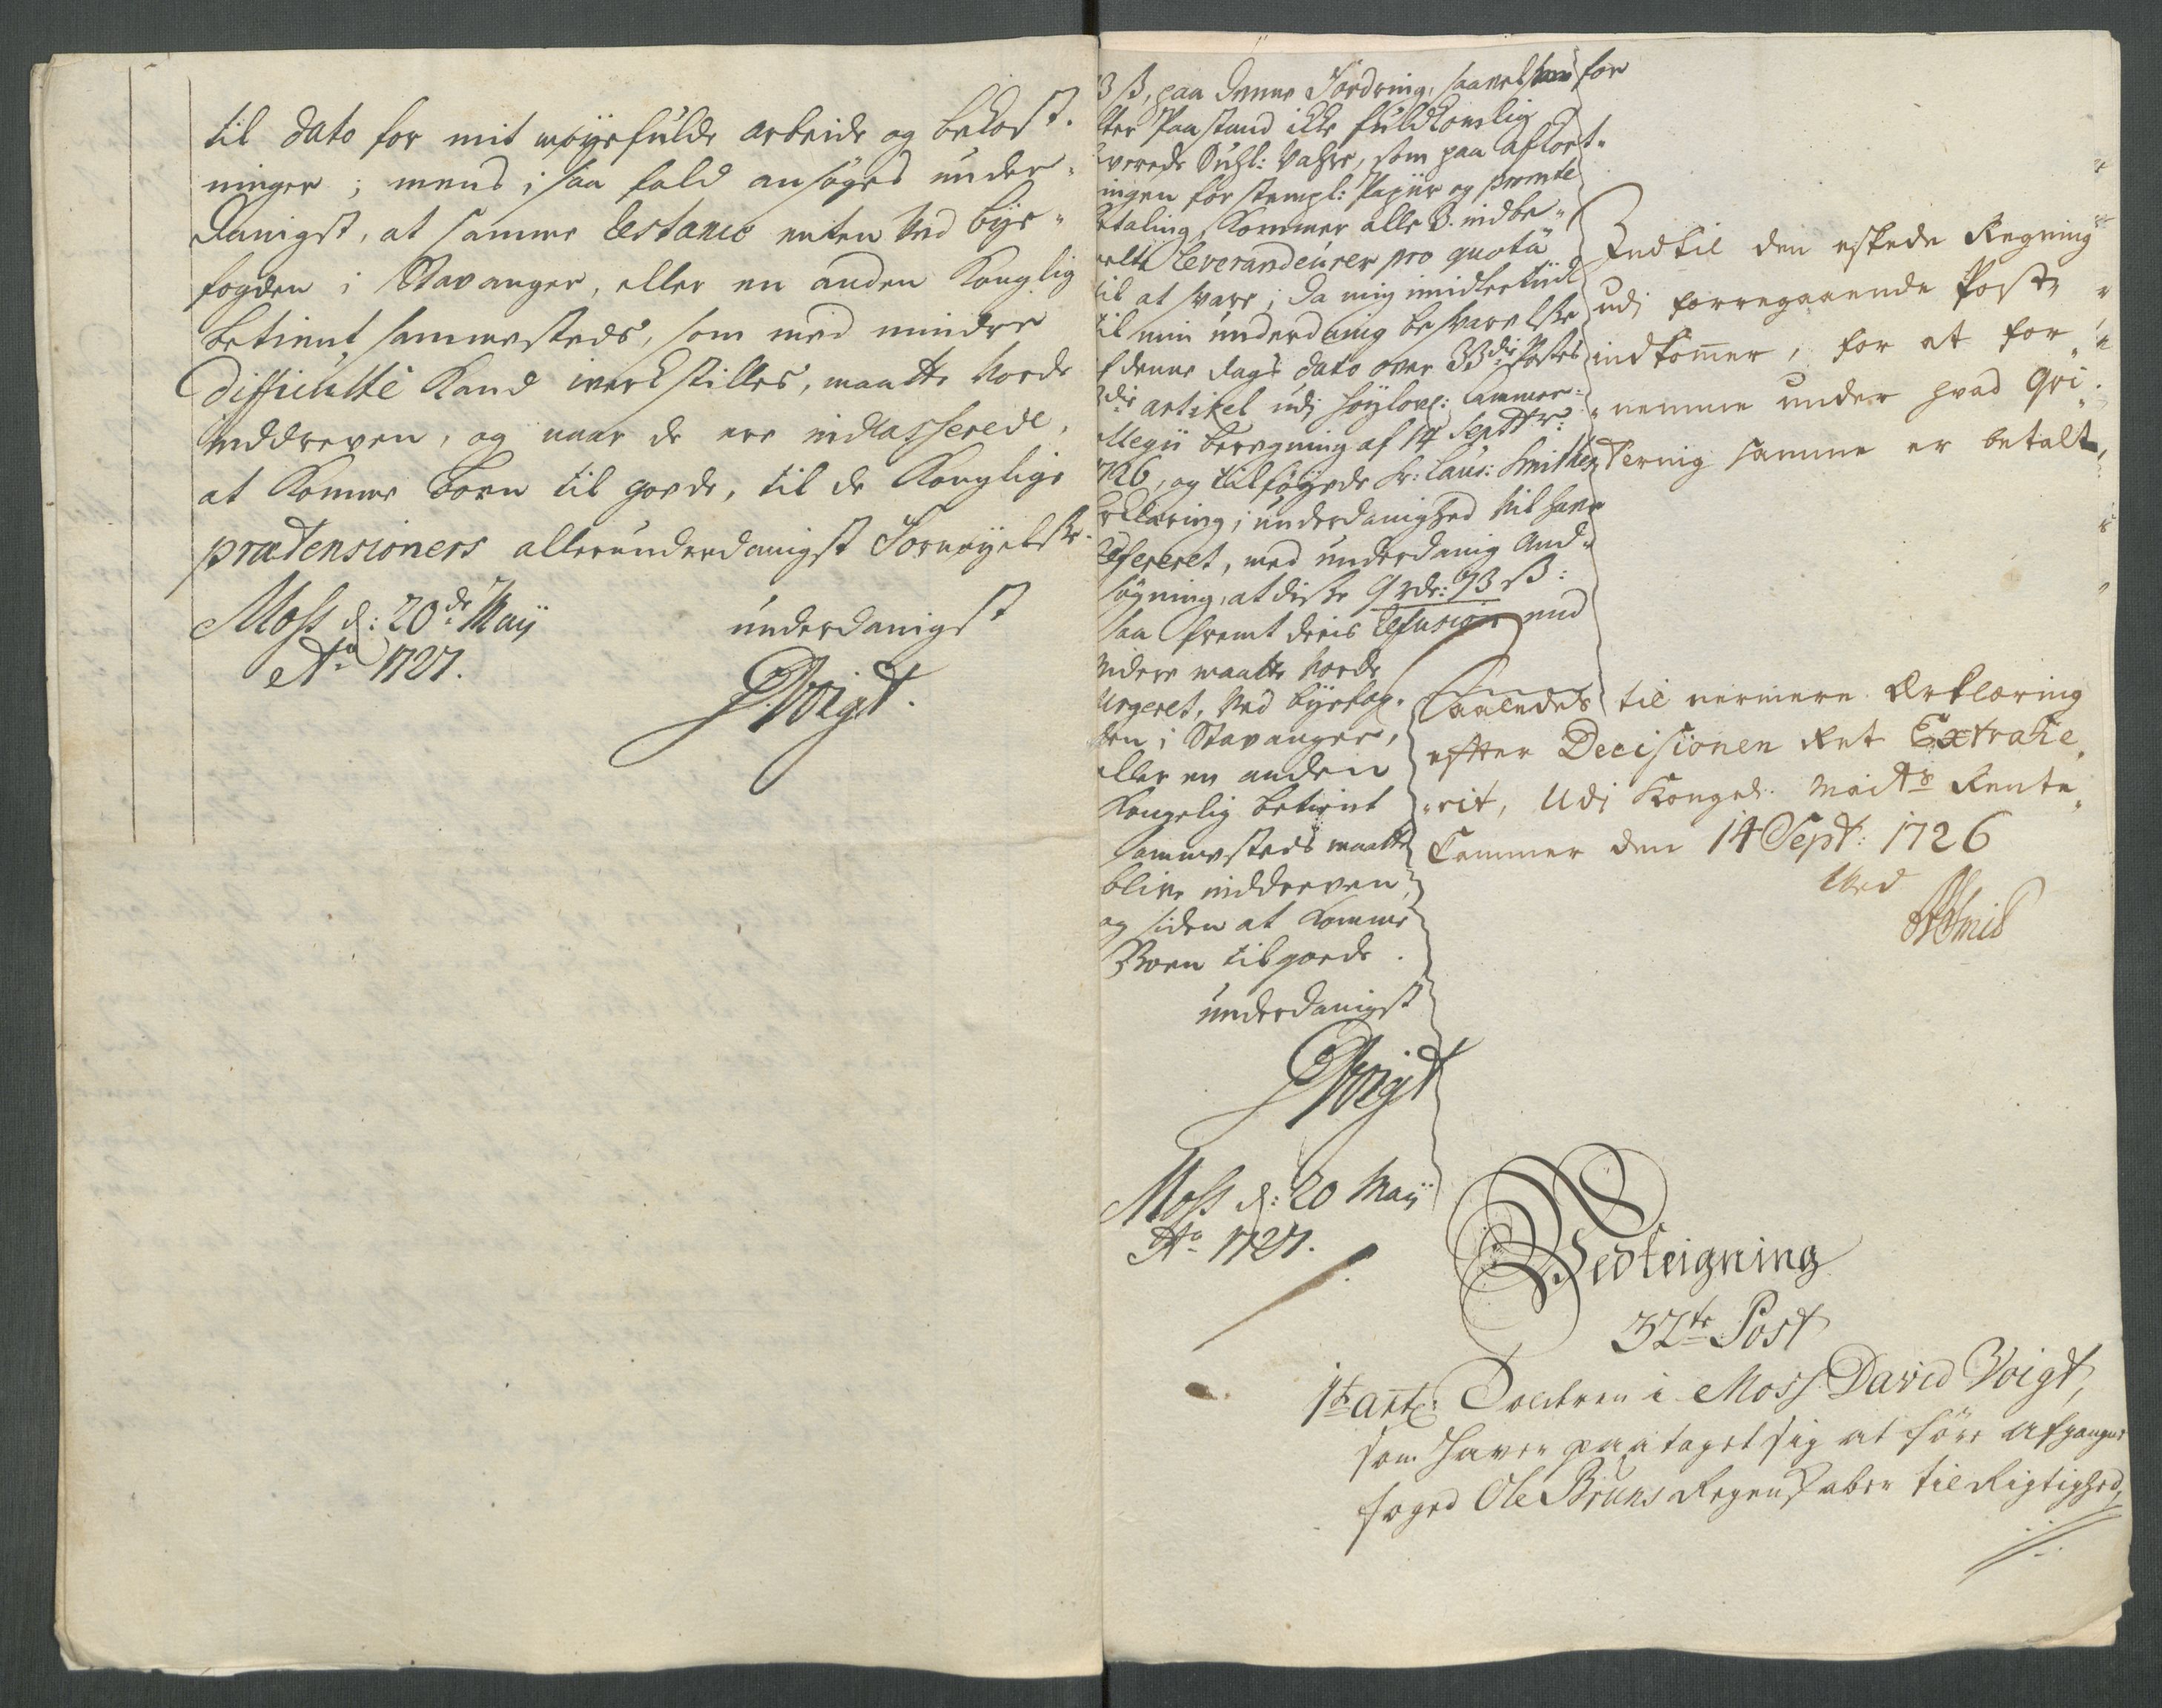 til dato for mit møyefulde arbeide og bekost-
ninger; mens i saa fald ansøges under-
danigst, at samme Restance enten ved bye-
fogden i Stavanger, eller en anden Konglig
betient sammesteds, som med mindre
difficulté Kand werkstilles, maatte vorde
inddreven, og naar de ere indcasserede,
at Komme Boen til goede, til de Konglige
prætensioners allerunderdanigst Fornøyelse.
Moss d: 20de Maij
Ao 1727.
underdanigst
DVoigt.
3 ß, paa denne Fordring, saavel som for
ter Paastand icke fuldkomelig
leverede Vahre, som paa afkort-
ningen for stempl: Papiir og
betaling, Kommer alle
Leverandeurer pro quota
til at svare; da mig imidlertiid
til min underdanig besvarelse
af denne dags dato over 33die Postes
die artikel udj høylovl: Cammer-
Collegii beregning af 14 Septbr:
1726, og tilføyede Hr: Laur: Smithes
Erklæring i underdanighed vil have
Refereret, med underdanig And-
søgning, at disse 9 rdr: 93 ß:
saa fremt deris Refusion
videre maatte vorde
Urgeret, ved byefog-
den i Stavanger,
eller en anden
Kongelig betient
sammesteds maatte
blive inddreven,
og siden at Komme
Boen til goede.
underdanigst
DVoigt
Moss d: 20 Maij
Ao 1727.
Indtil den eskede Regning
udj forregaaende Post
indkommer, for at for-
nemme under hvad Qvi-
tering samme er betalt,
Saaledes til nermere Erklæring
efter Decisionen Ret Extrahe-
rit, Udi Kongel: Maits Rente
Cammer den 14 Sept: 1726
Ved
Smit
Bedteigning
32te Post
1te Artl: Tolderen i Moss David Voigt,
som haver paataget sig at føre afgangne
foged Ole Bruns Regenskaber til Rigtighed,